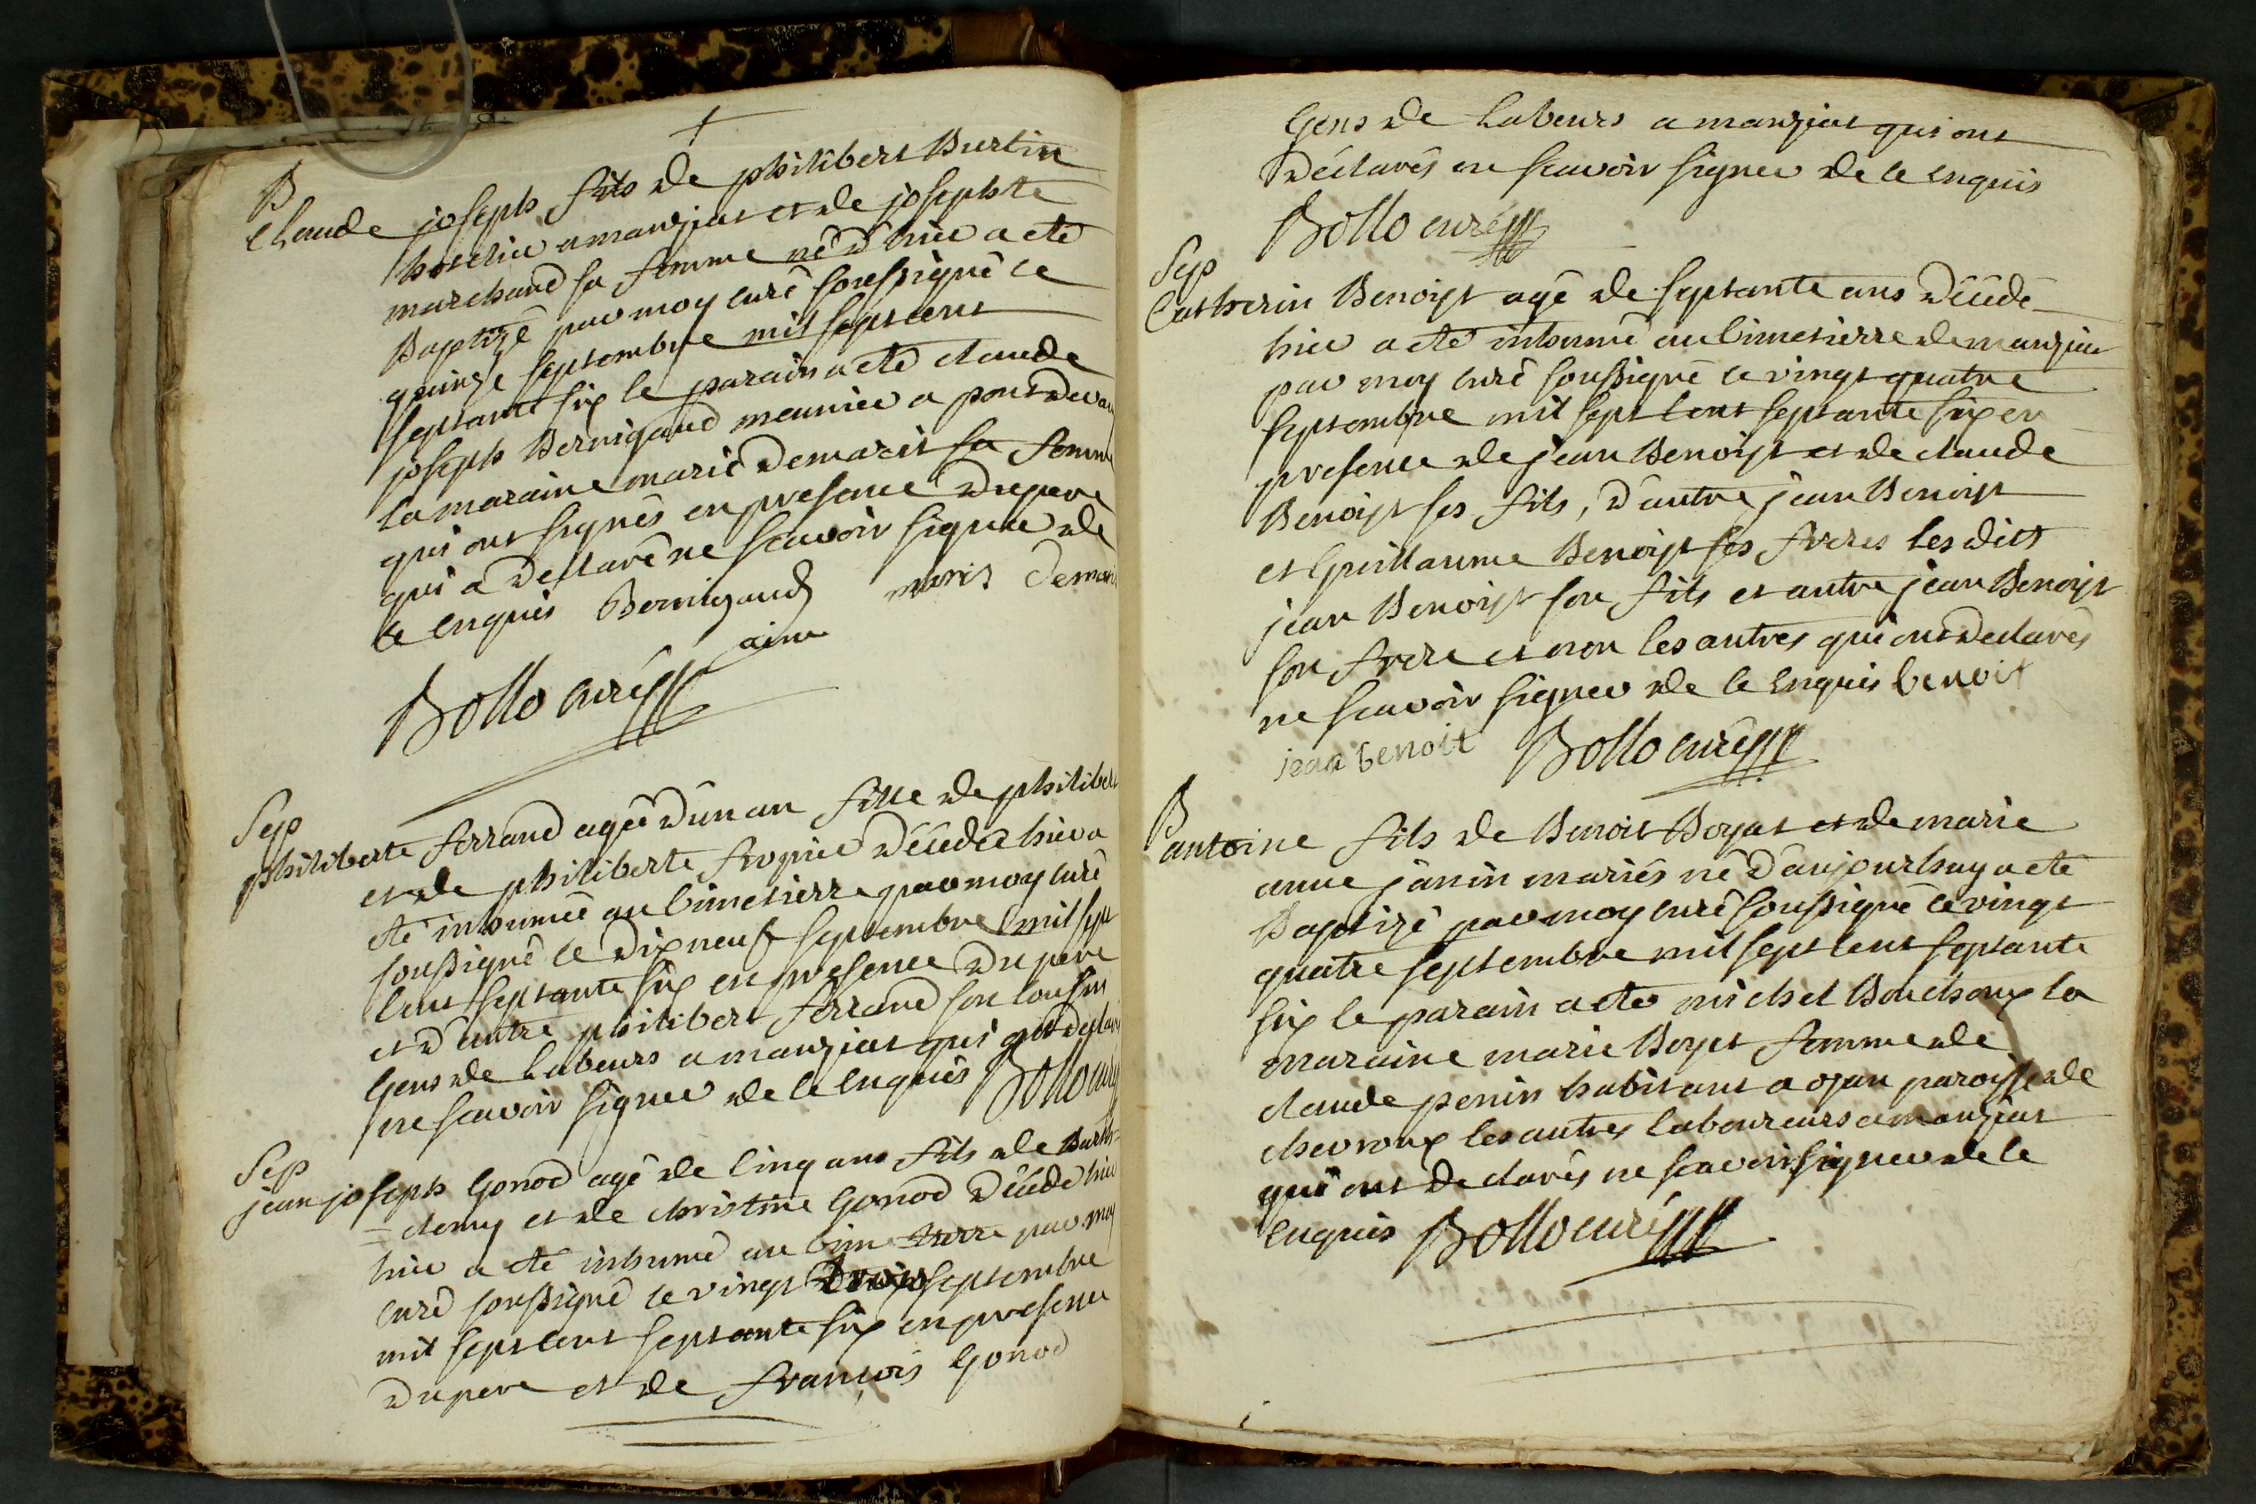 B
Claude joseph fils de philibert Burtin
hotelier a manziat et de josephte
marchand sa femme né d'hier a eté
Baptizé par moy curé soussigné ce
quinze septembre mil sept cent
septante six le parain a eté claude
joseph Bernigaud meunier a pont devau
la maraine marie demarit sa femme
qui ont signés en presence du pere
qui a declaré ne scavoir signer de
ce enquis Bernigaud marit demari
ainé
Bollo curé
Sep
philiberte ferrand agée d'un an fille de philibert
et de philiberte fropier décédée hier a
été inhumée au cimetierre par moy curé
soussigné le dix neuf septembre mil sept
cent septante six en presence du pere
et d'autre philibert ferrand son cousin
gens de labeurs a manziat qui ont declaré
ne scavoir signer de ce enquis Bollo curé
Sep
jean joseph Gonod agé de cinq ans fils de Barth=
=elemy et de christine Gonod décédé hier
hier a été inhumé au cimetierre par moy
curé soussigné le vingt septembre
mil sept cent septante six en presence
du pere et de francois Gonod
gens de Labeurs a manziat qui ont
déclarés ne scavoir signer de ce enquis
Bollo curé
Sep
Catherin Benoist agé de septante ans décédé
hier a eté inhumé au cimetierre de manziat
par moy curé soussigné le vingt quatre
septembre mil sept cent septante six en
presence de jean Benoist et de claude
Benoist ses fils, d'autre jean Benoist
et Guillaume Benoist ses freres les dits
jean Benoist son fils et autre jean Benoist
son frere et non les autres qui ont declarés
ne scavoir signer de ce enquis benoit
jean benoit Bollo curé
B
antoine fils de Benoit Boyat et de marie
anne janin mariés né d'aujourhuy a eté
Baptizé par moy curé soussigné le vingt
quatre septembre mil sept cent septante
six le parain a eté michel Bouchoux la
maraine marie Boyat femme de
claude penin habitant a ozan paroisse de
chevroux les autres laboureurs a manziat
qui ont declarés ne scavoir signer de ce
enquis Bollo curé